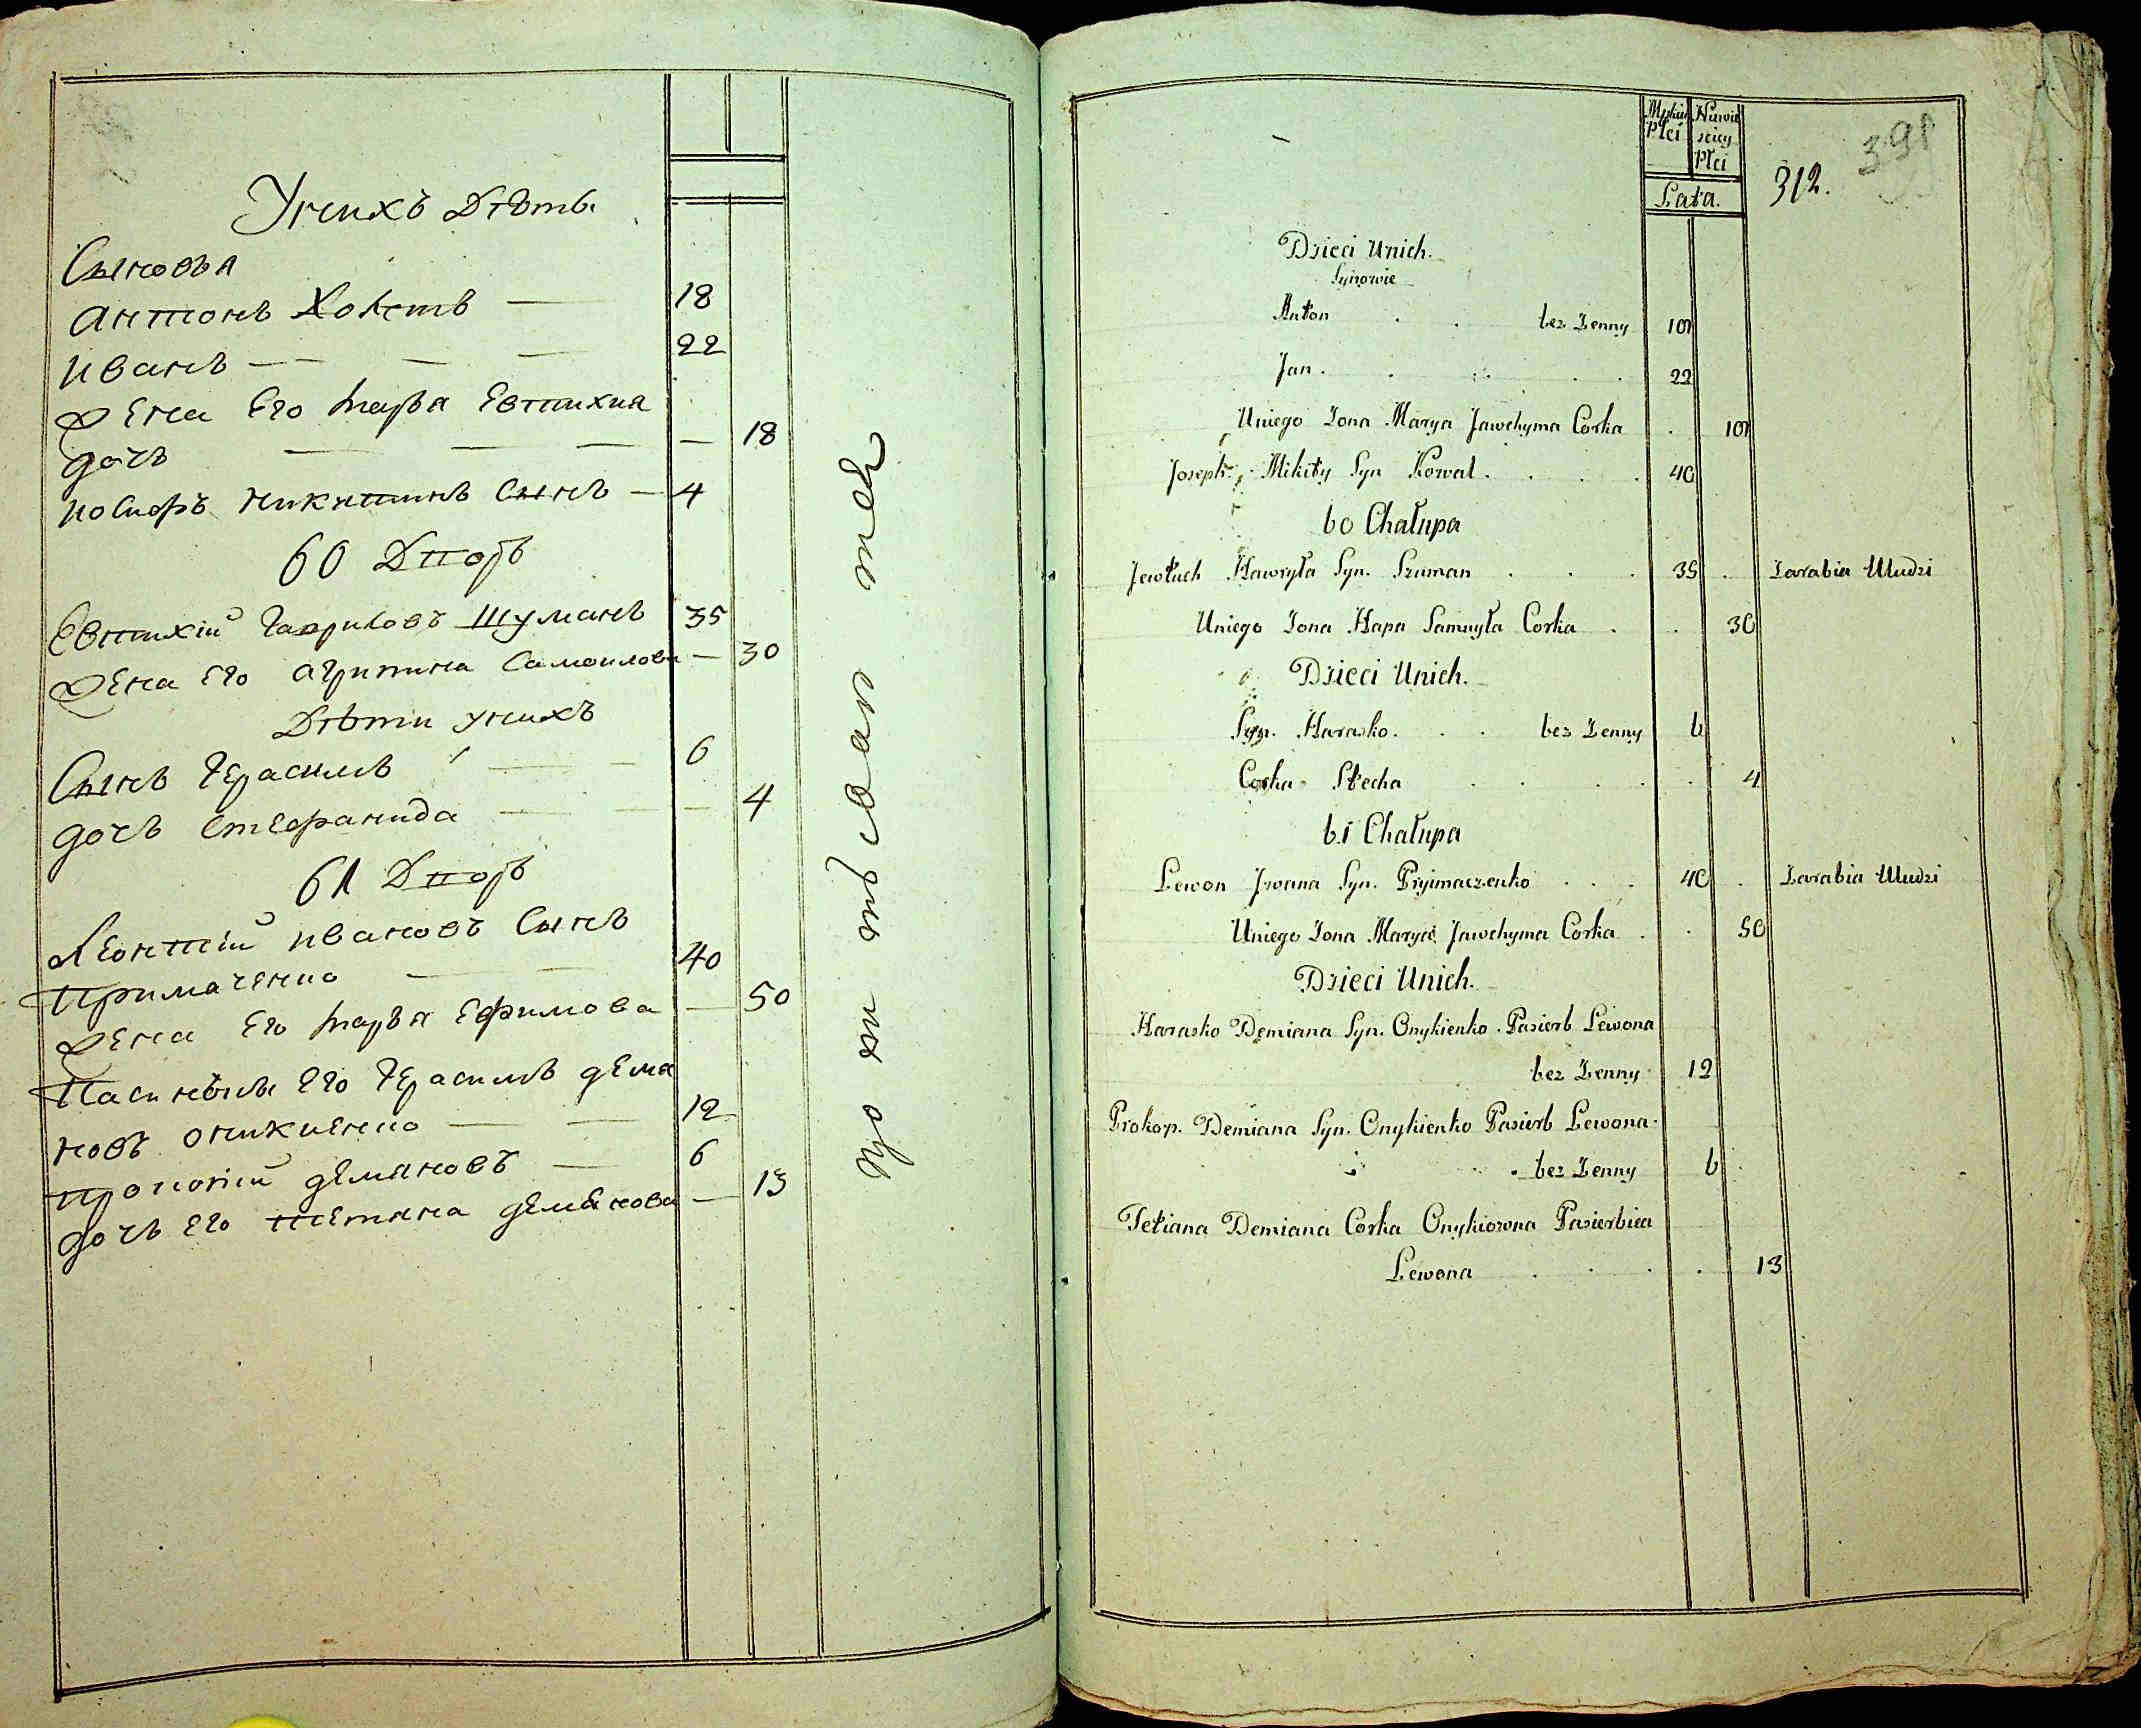 Унихъ Дѣти
Сыновья
Антонъ Холстъ — 18
Иванъ — — — 22
Жена Его Марья Евтихия
дочь — — — — 18
Иосифъ Никитинъ Сынъ — 4
60 Дворъ
Евтихій Гавриловъ Шуманъ 35
Жена Его Агрипина Самоилова — 30
Дѣти унихъ
Сынъ Герасимъ — — 6
дочь Стефанида — — — 4
61 Дворъ
Леонтій Ивановъ Сынъ
Примаченко — — 40
Жена Его Марья Ефимова — 50
Пасинъки Его Герасимъ демя
новъ Оникиенко — — 12
Прокопій демяновъ — 6
дочь Его Тетяна демянова — 13
312.
391
Męskiey Płci
Niewiesciey Płci
Lata.
Dzieci Unich.
Synowie
Anton . . bez Żenny 18
Jan . . . . . 22
Uniego Żona Marya Jawchyma Corka . 18
Joseph Mikity Syn Kowal . . . 40
60 Chałupa
Jewtuch Hawryła Syn. Szuman . . . 35 . Zarabia Ukudzi
Uniego Żona Hapa Samuyła Corka . . 30
Dzieci Unich.
Syn. Harasko . . . bez Żenny 6
Corka Stecha . . . . . 4
61 Chałupa
Lewon Jwana Syn. Pryimaczenko . . . 40 . Zarabia Ukudzi
Uniego Żona Marya Jawchyma Corka . . 50
Dzieci Unich.
Harasko Demiana Syn. Onykienko. Pasierb Lewona
bez Żenny 12
Prokop. Demiana Syn. Onykienko Pasierb Lewona.
bez Żenny 6
Tetiana Demiana Corka Onykiowna Pasierbica
Lewona . . . . 13